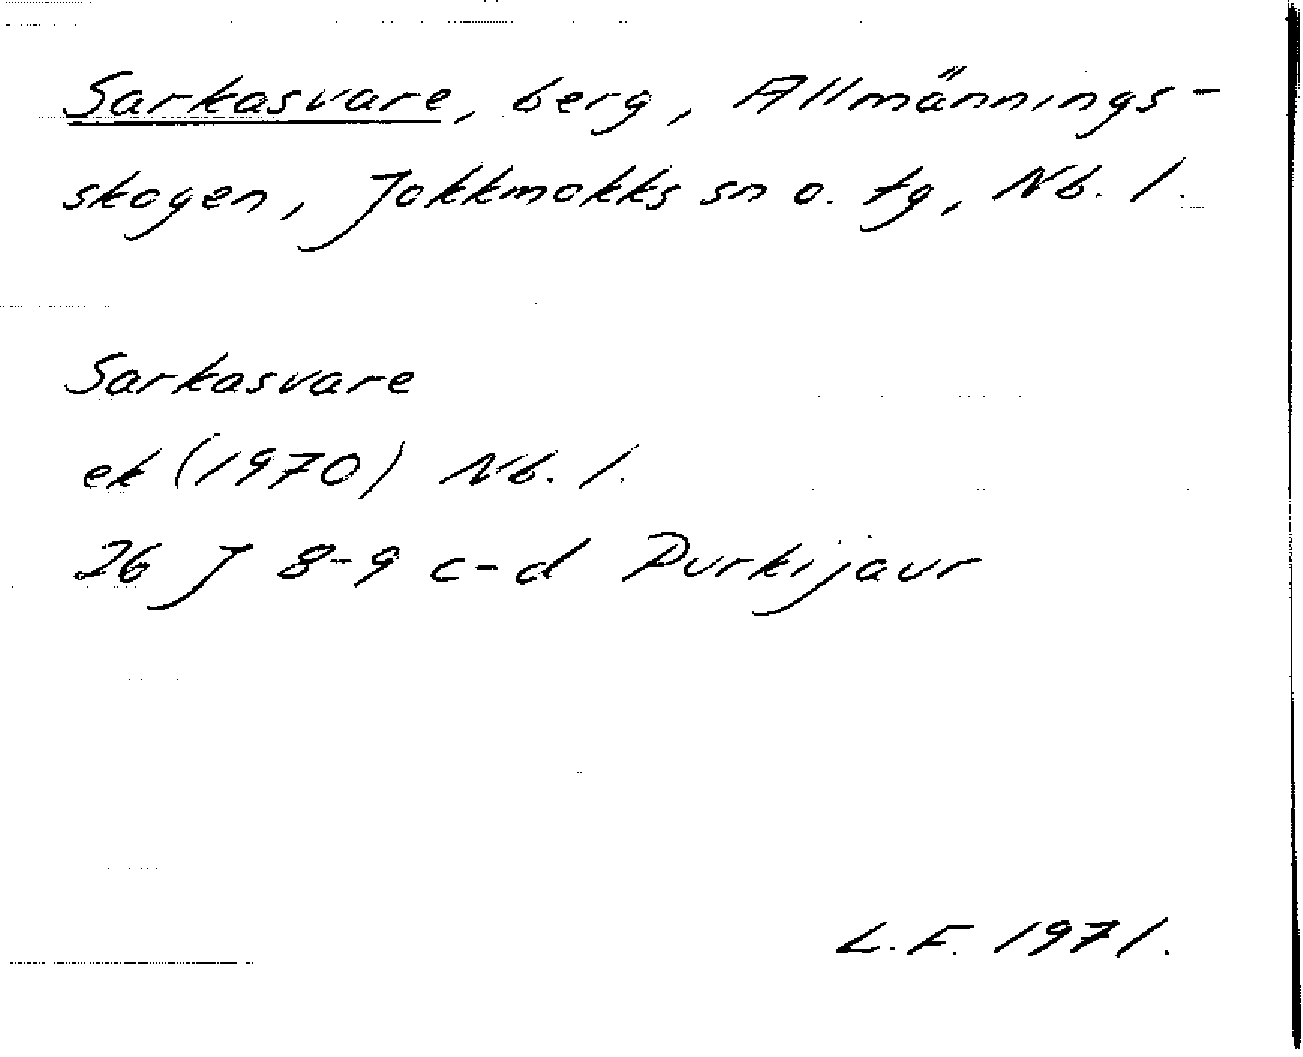 Sarkasvare, berg, Allmännings-
skogen, Jokkmokks sn o. tg, Nb. l.
Sarkasvare
ek (1970) Nb. l.
26 J 8-9 c-d Purkijaur
L.F. 1971.